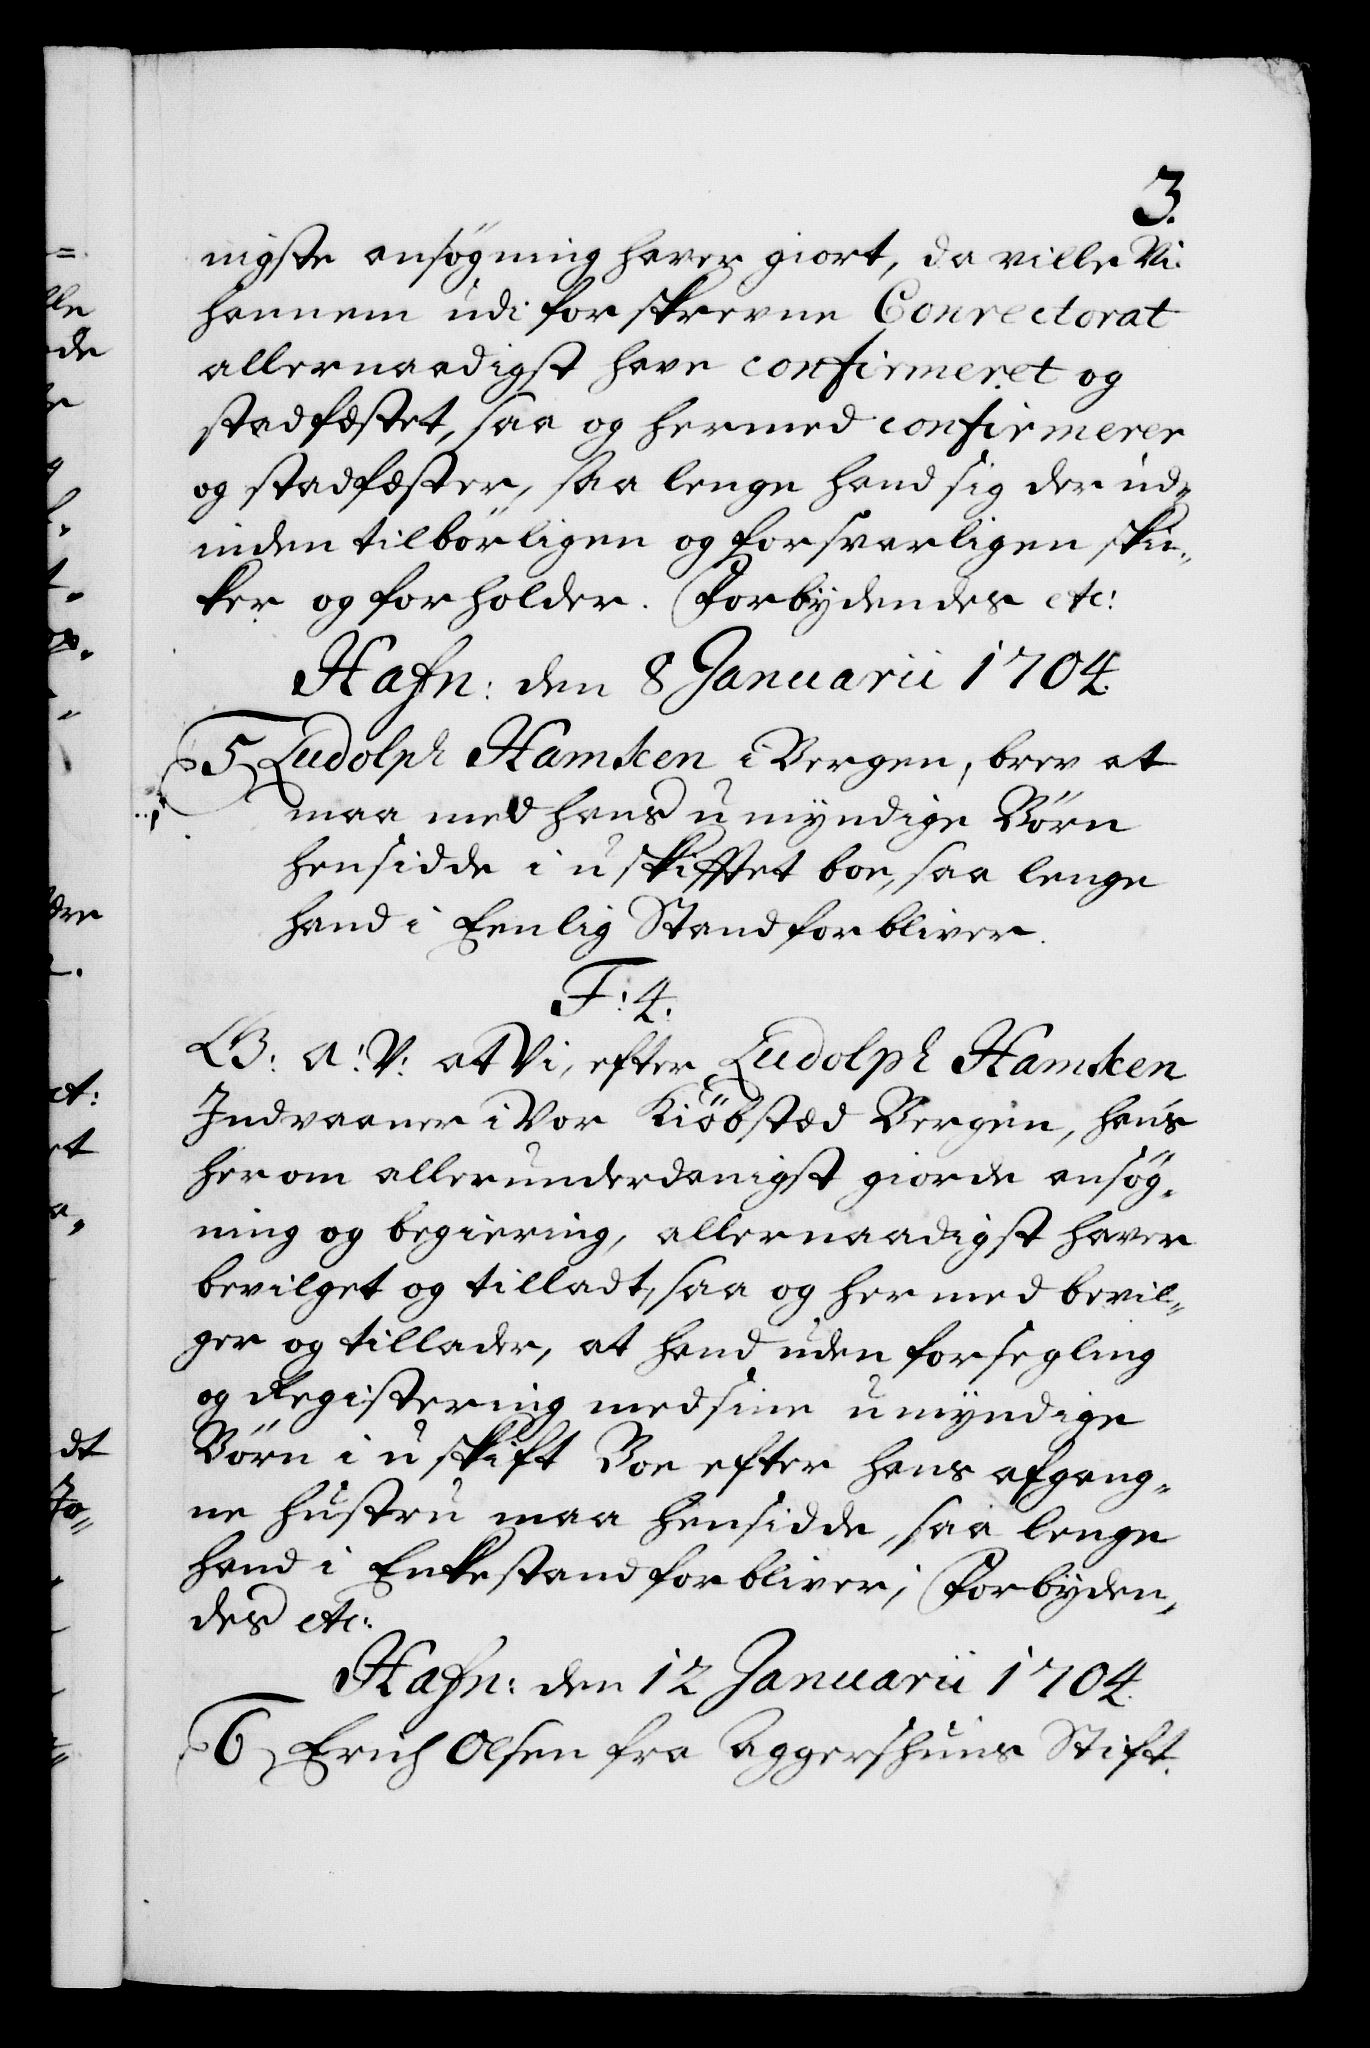 3.
nigste ansøgning haver giort, da ville Vi
hannem udi forskrevne Conrectorat
allernaadigst have confirmeret og
stadfæstet, saa og hermed confirmerer
og stadfæster, saa lenge hand sig der ud„
inden tilbørligen og forsvarligen skic„
ker og forholder. Forbydendes etc:
Hafn: den 8 Januarii 1704.
5 Ludolph Hamken i Bergen, brev at
maa med hans umyndige Børn
hensidde i uskifftet boe, saa lenge
hand i Eenlig Stand forbliver.
F: 4.
G: A: V: at Vi, efter Ludolph Hamken
Indvaaner i Vor Kiøbstæd Bergen, hans
herom allerunderdanigst giorde ansøg„
ning og begiering, allernaadigst haver
bevilget og tilladt, saa og hermed bevil„
ger og tillader, at hand uden forsegling
og Registering med sine umyndige
Børn i uskift Boe efter hans afgang„
ne hustru maa hensidde, saa lenge
hand i Enkestand forbliver; Forbyden„
des etc:
Hafn: den 12 Januarii 1704.
6 Erich Olsen fra Aggershuus Stift.